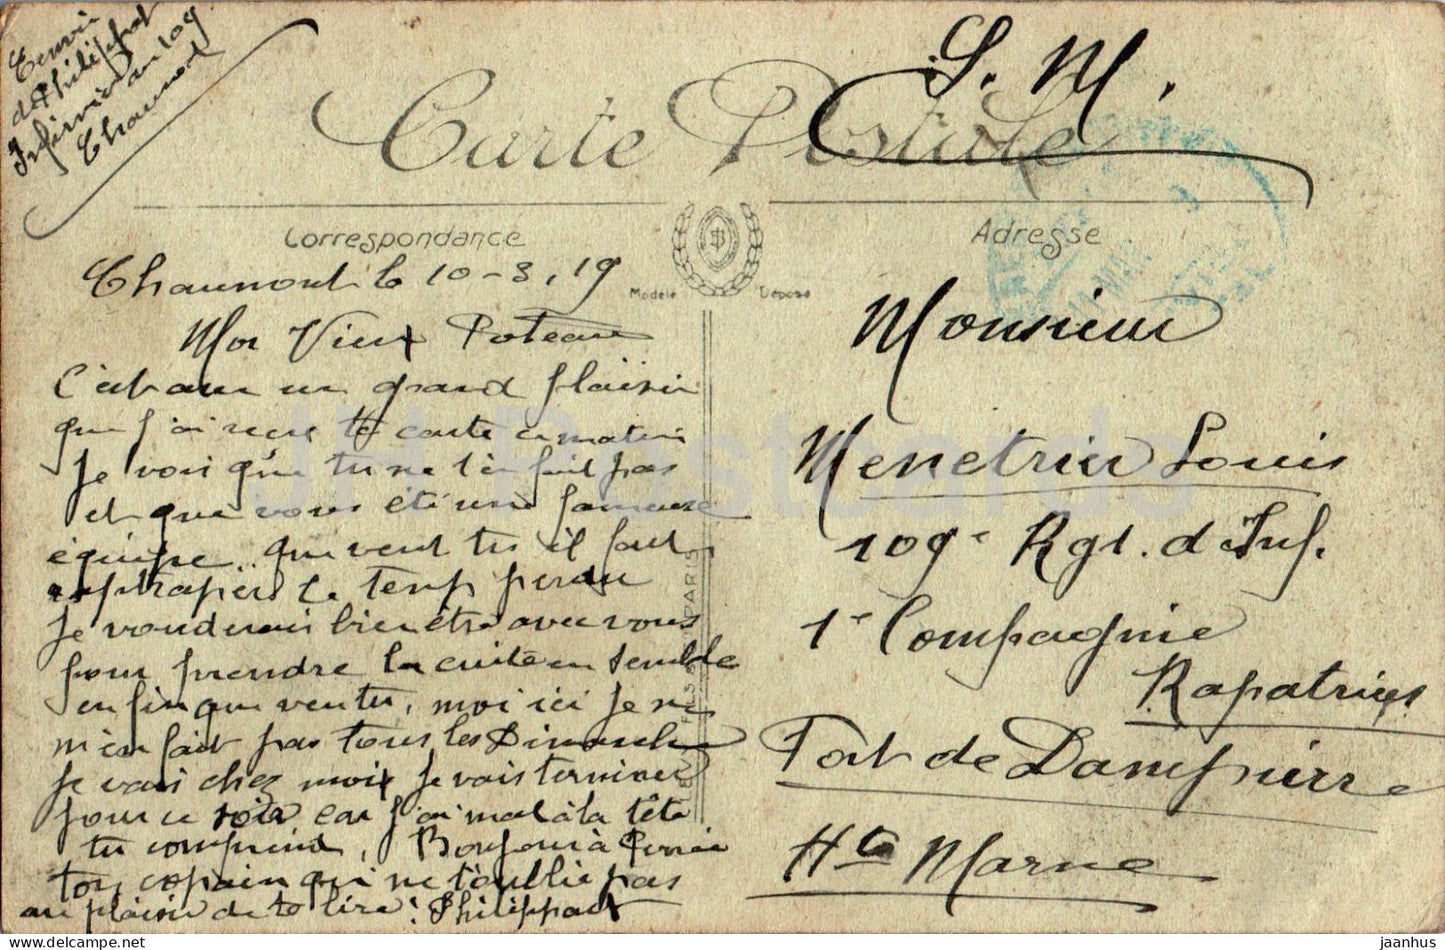 Envoi
de Philippot
Infirmier au 109
Chaumont
S. M.
Carte Postale
Correspondance
Adresse
Modèle Déposé
Chaumont le 10-3, 19
Mon Vieux Poteau
C'est avec un grand plaisir
que j'ai reçu ta carte ce matin
Je vois que tu ne t'en fait pas
et que vous été une fameuse
équipe.. que veut tu il faut
raptraper le temp perdu
Je voudrais bien être avec vous
pour prendre la cuite ensemble
enfin que veu tu, moi ici je ne
m'en fait pas tous les Dimanche
je vais chez moi je vais terminer
pour ce soir car j'ai mal à la tête
tu comprend, Bonjour à
ton copain qui ne t'oublie pas
au plaisir de te lire: Philippot
LEVY FILS PARIS
Monsieur
Menetrier Louis
109e Rgt. d'Inf.
1e Compagnie
Rapatries
Fort de Dampierre
Hte Marne
JH Postcards
jaanhus @ delcampe.net